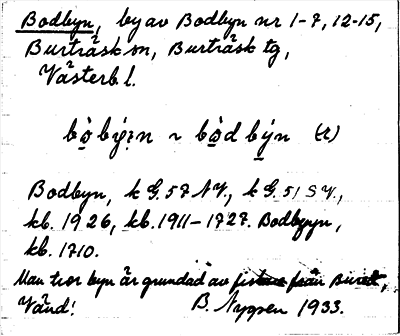 Bodbyn, by av Bodbyn nr 1-7, 12-15,
Burträsk sn, Burträsk tg,
Västerb. l.
bòbýn ~ bòdbýn (t)
Bodbyn, k G. 57 NV., k G. 51 SV.,
kb. 1926, kb. 1911-1727. Bodbyyn,
kb. 1710.
Man tror byn är grundad av från
Vänd! B. Nygren 1933.